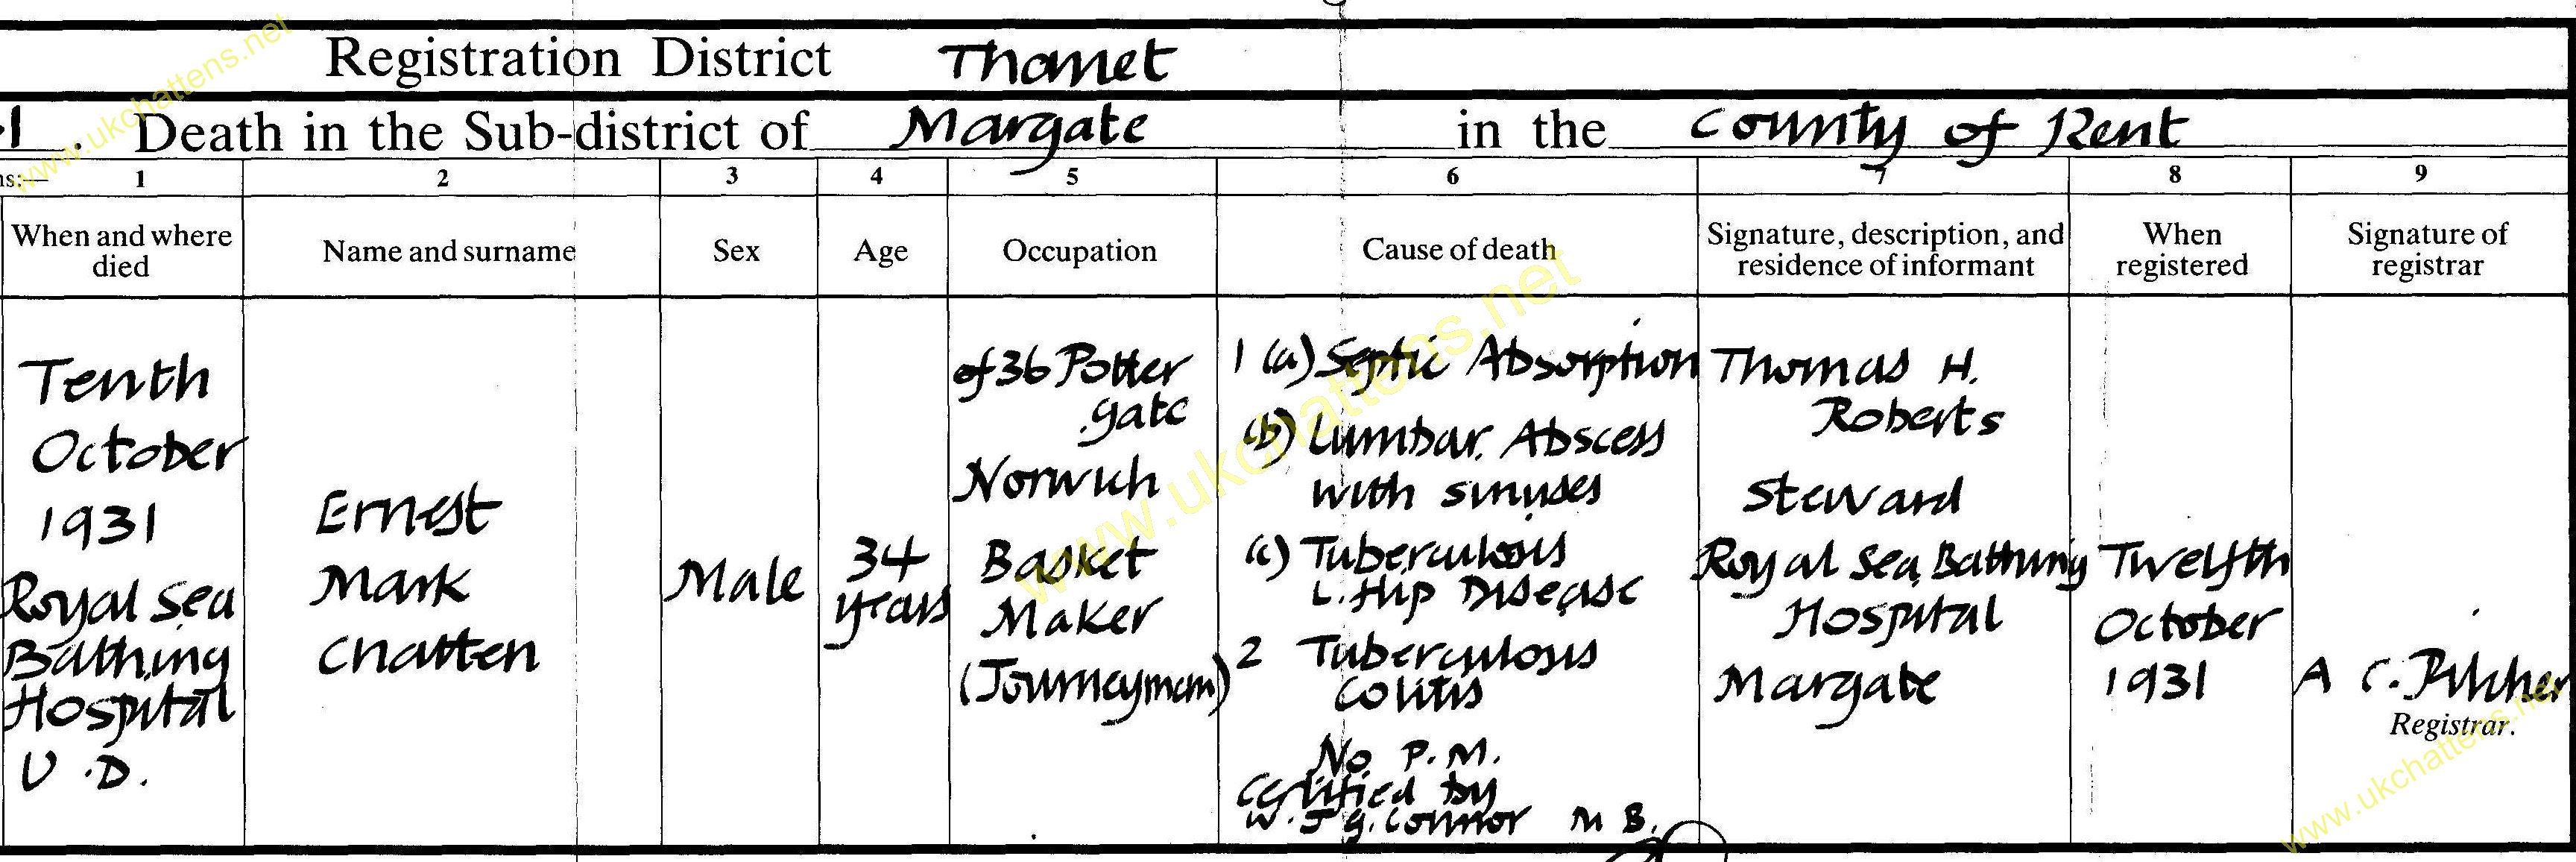 Registration District Thanet
1. Death in the Sub-district of Margate in the County of Kent
ns:— 1 2 3 4 5 6 7 8 9
When and where died
Name and surname
Sex
Age
Occupation
Cause of death
Signature, description, and residence of informant
When registered
Signature of registrar
Tenth
October
1931
Royal Sea
Bathing
Hospital
U.D.
Ernest
Mark
Chatten
Male
34
years
of 36 Potter
gate
Norwich
Basket
Maker
(Journeyman)
1 (a) Septic Absorption
(b) Lumbar Abscess
with sinuses
(c) Tuberculosis
L. Hip Disease
2 Tuberculous
Colitis
No P.M.
Certified by
W. J G. Connor M B.
Thomas H.
Roberts
Steward
Royal Sea Bathing
Hospital
Margate
Twelfth
October
1931
A C. Pilcher
Registrar.
www.ukchattens.net
www.ukchattens.net
www.ukchattens.net